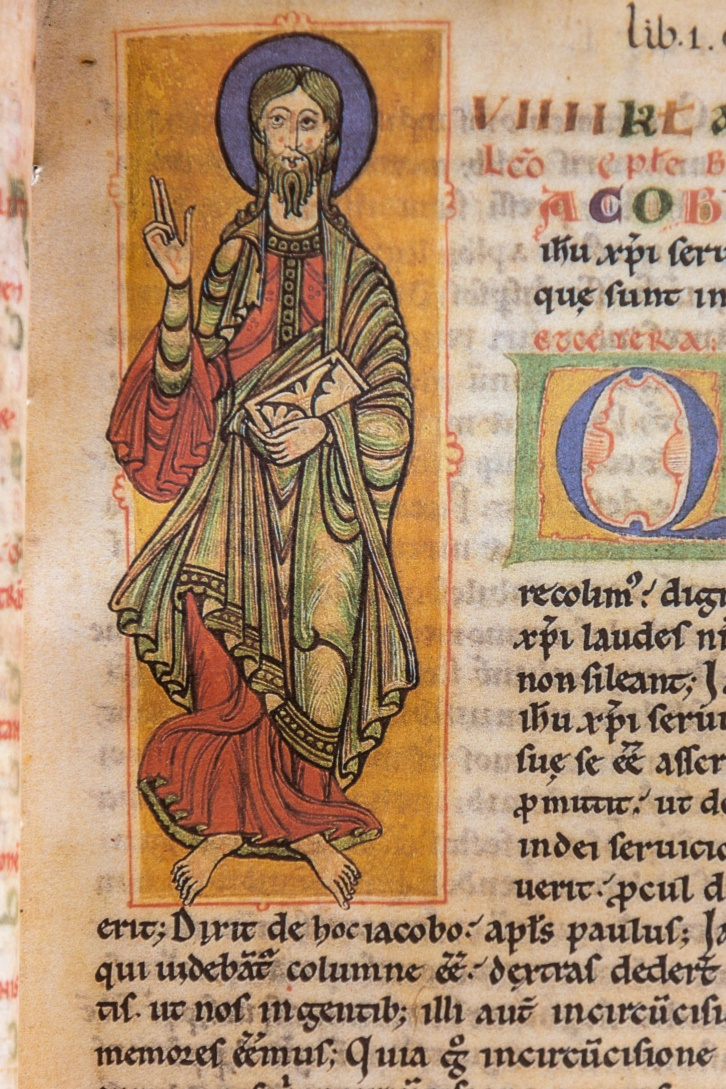 lib. 1.
VIIII KL
Lc̄o eple B
IACOB
ih̄u xp̄i serv
quę sunt in
et cetera.
Q
recolim⁹? dign
xp̄i laudes
non sileant; Ia
ih̄u xp̄i serui
suę se ee̅ asser
ut de
in dei seruicio
uerit. ꝓcul d
erit; Dixit de hoc iacobo? apl̄s paulus; Ia
qui uidebāt² columne ee̅? dextras dedert̄
tis. ut nos in gentib; illi aut̄ in circūcisi
memores ēēmus; Quia g̊ in circūcisione